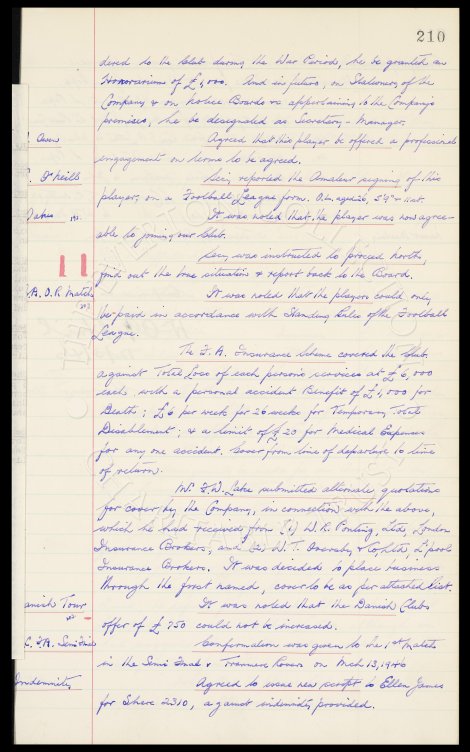 210
dered to the Club during the War Period, he be granted an
Honorarium of £1,000. And in future, on Stationery of the
Company & on Notice Boards re appertaining to the Company's
premises, he be designated as Secretary - Manager.
Agreed that this player be offered a professional
engagement on terms to be agreed.
O'Neill
Secy. reported the Amateur signing of this
player, on a Football League form.
It was noted that the player was now agree-
able to joining our Club.
Secy. was instructed to proceed North,
find out the true situation & report back to the Board.
11
Match
It was noted that the players could only
be paid in accordance with Standing Rules of the Football
League.
The F.A. Insurance Scheme covered the Club,
against Total Loss of each person's services at £6,000
each, with a personal accident Benefit of £1,000 for
Death; £6 per week for 26 weeks for Temporary Total
Disablement; & a limit of £20 for Medical Expenses
for any one accident. Cover from time of departure to time
of return.
Mr. F.W. submitted alternate quotations
for cover by the Company, in connection with the above,
which he had received from (i) W.R. Ponting, Ltd, London
Insurance Brokers, and (ii) W.T. L'pool
Insurance Brokers. It was decided to place business
through the first named, cover to be as per attested list.
anish Tour
It was noted that the Danish Clubs
offer of £750 could not be increased.
Confirmation was given to the 1st Match
in the Semi Final v Tranmere Rovers on Mch 13, 1946
Indemnity
Agreed to issue new script to Ellen James
for Share 2310, against indemnity provided.